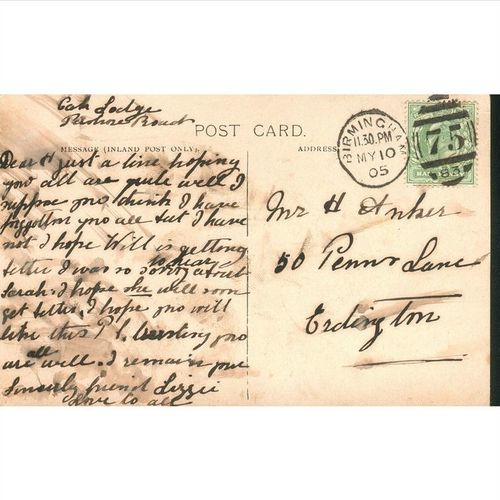 Oak Lodge
Road
POST CARD.
MESSAGE (INLAND POST ONLY).
ADDRESS
BIRMINGHAM
11.30.PM
MY 10
05
75
Dear H just a line hoping
you all are quite well I
suppose you think I have
forgotten you all but I have
not I hope Will is getting
better I was so sorry to hear about
Sarah. I hope she will soon
get better. I hope you will
like this P.C. trusting you
all are well. I remain your
sincerely friend Lizzie
love to all
Mr H Anker
50 Penns Lane
Erdington